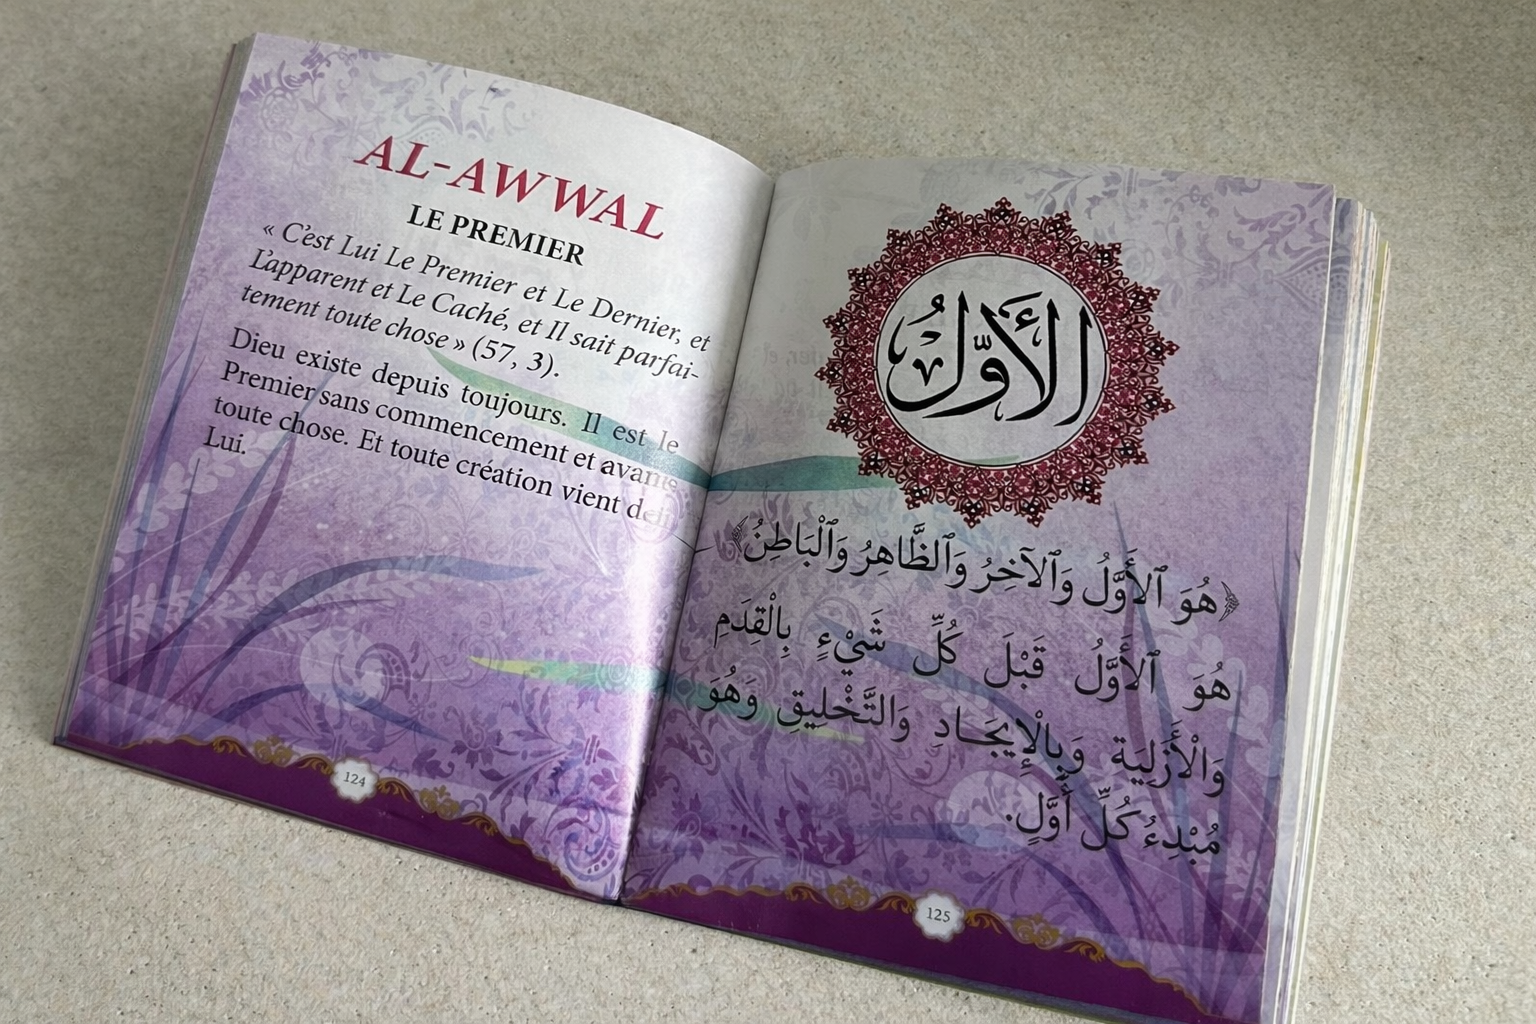 AL-AWWAL
LE PREMIER
« C'est Lui Le Premier et Le Dernier, et
L'apparent et Le Caché, et Il sait parfai-
tement toute chose » (57, 3).
Dieu existe depuis toujours. Il est le
Premier sans commencement et avant
toute chose. Et toute création vient de
Lui.
124
الأَوَّلُ
﴿هُوَ ٱلأَوَّلُ وَٱلآخِرُ وَٱلظَّاهِرُ وَٱلْبَاطِنُ﴾
هُوَ ٱلأَوَّلُ قَبْلَ كُلِّ شَيْءٍ بِالْقِدَمِ
وَالْأَزَلِيَة وَبِالْإِيجَـادِ وَالتَّخْلِيقِ وَهُوَ
مُبْدِءُ كُلِّ أَوَّلٍ.
125